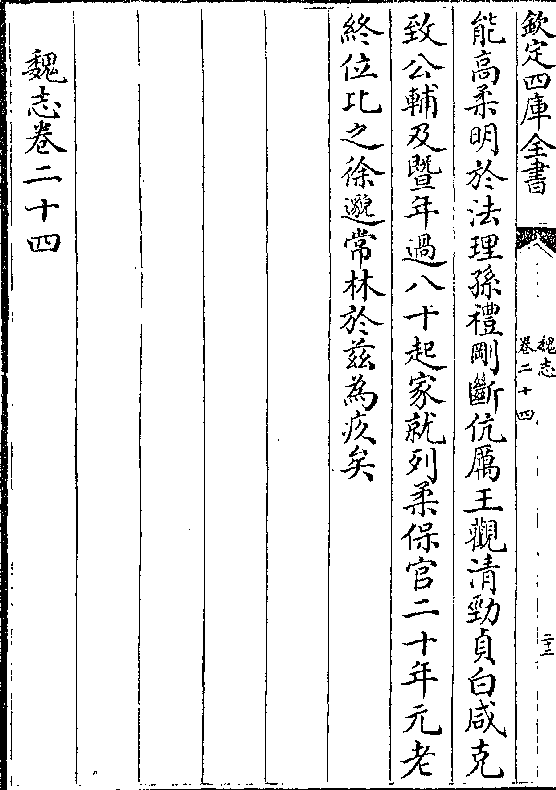 欽定四庫全書
魏志
卷二十四
二三
能高柔明於法理孫禮剛斷伉厲王觀清勁貞白咸克
致公輔及暨年過八十起家就列柔保官二十年元老
終位比之徐邈常林於兹為疚矣
魏志卷二十四